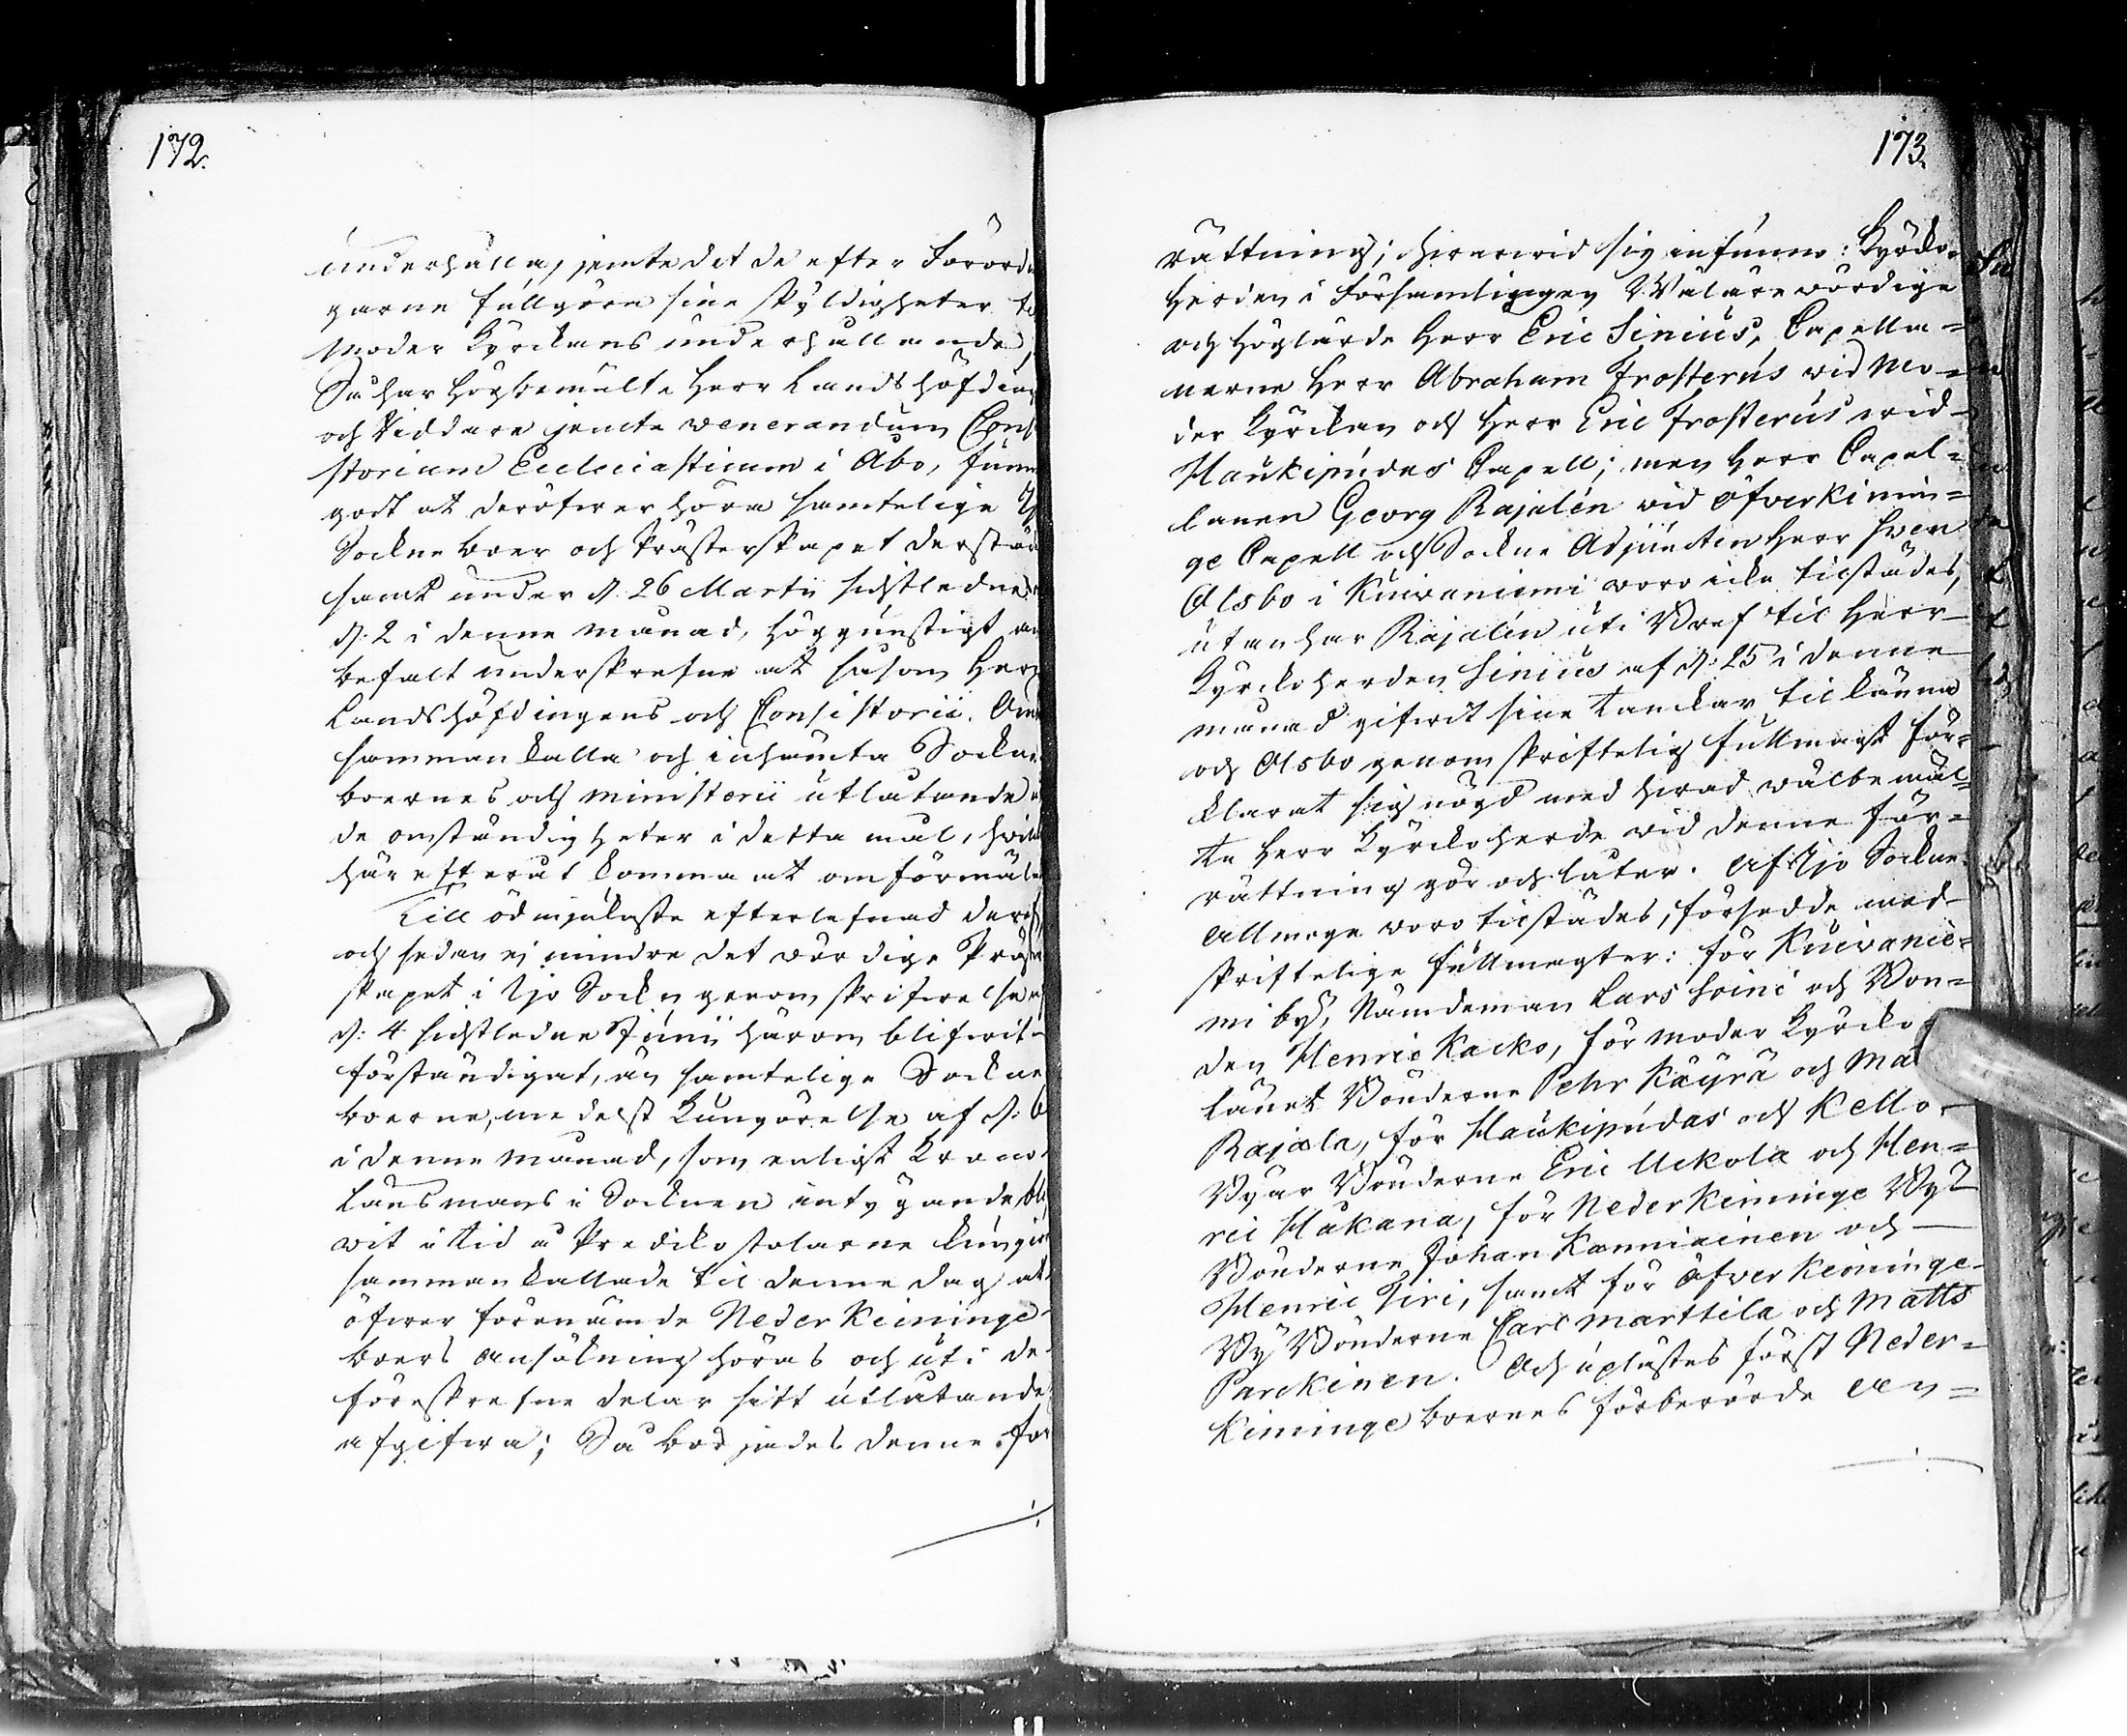 172.
underhålla, jemte det de efter Förord
garne fullgöra sine skyldigheter
Moder Kyrckans underhållande,
Så har högbemälte Herr Landshöfding
och Riddare jemte venerandum Consi
storium Ecclesiasticum i Åbo, funn
godt at deröfwer höra samtelige
Sockne boer och Prästerskapet derstäd
samt under d. 26 Martii sidstledne
d. 2 i denne månad, höggunstigt an
befalt underskrefne at såsom Herr
Landshöfdingens och Consistorii. Om
sammankalla och inhämta Sockne
boernes och ministerii utlåtande
de omständigheter i detta mål, hwil
här efteråt komma at omförmäla
Till ödmjukaste efterlefnad deraf,
och sedan ej mindre det wördige Präste
skapet i Ijo Sockn genom skrifwelse
d: 4 sidstledne Junii härom blifwit
förständigat, än samtelige Sockne
boerne, medelst Kungörelse af d: 6
i denne månad, som enligt Krono
Länsmans i Socknen intygande bli
wit i tid å Predikostolarne kungi
sammankallade til denne dag at
öfwer förenämde Neder Kiminge
boers ansökning höras och uti de
föreskrefne delar sitt utlåtande
afgifwa; Så börjades denne för
173.
rättning; hwarwid sig infunno: Kyrcko
Herden i Församlingen Wälärewördige
och Höglärde Herr Eric Sinius, Capella=
nerne Herr Abraham Frosterus wid Mo=
der Kyrckan och Herr Eric Frosterus wid
Haukipudas Capell; men Herr Capel=
lanen Georg Rajalin wid öfverkimin=
ge Capell och Sockne Adjuncten Herr Sven
Alsbo i Kuivaniemi woro icke tilstädes,
utan har Rajalin uti Bref til Herr
Kyrckoherden Sinius af d: 25 i denne
månad gifwit sine tanckar til känna
och Alsbo genom skriftelig fullmagt för=
klarat sig nögd med hwad wälbemäl=
te Herr Kyrckoherde wid denne för=
rättning gör och låter. Af Ijo Sockne
Allmoge woro tilstädes, försedde med
skriftelige fullmagter: för Kuivanie=
mi by, Nämdeman Lars Soini och Bon=
den Henric Kacko, för moder Kyrcko
länet Bönderne Pehr Käyrä och Mat
Rajala, för Haukipudas och Kello
Byar Bönderne Eric Uckola och Hen=
ric Hukana, för Nederkiminge By
Bönderne Johan Kanniainen och
Henric Tiri, samt för öfver Keminge
By Bönderne Carl Marttila och Matts
Parckinen. Och uplästes först Neder=
Kiminge boernes förberörde an=